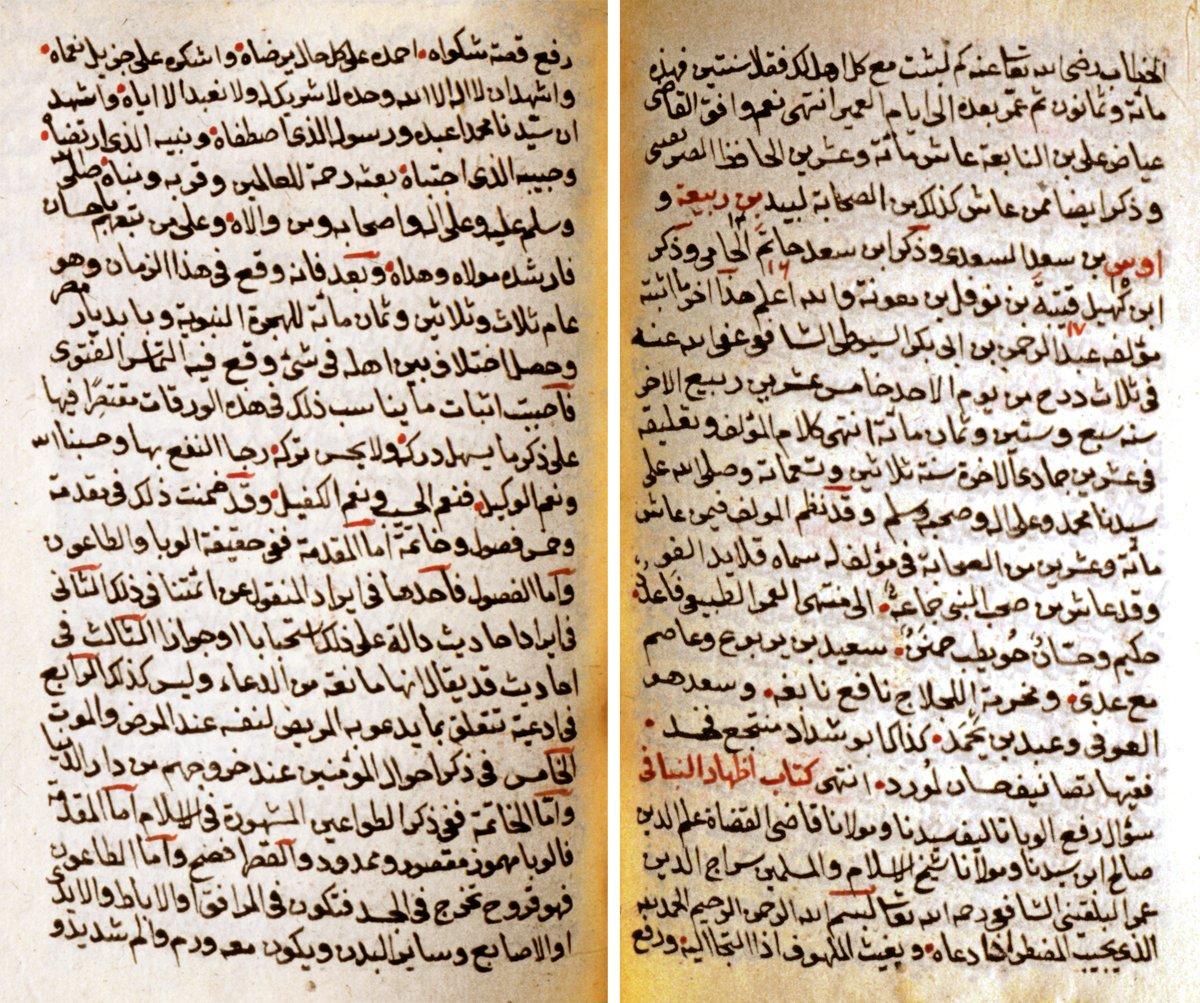 الخطاب رضى الله تعا عنه كم لبثت مع كل اهل لك فقال سنتين فهذه
مائة وثمانون ثم عمر بعده الى ايام العمير انتهى نعم وافق القاضى
عياض على بن النابغة عاش مائة وعشرين الحافظ
وذكر ايضا ممن عاش كذلك من الصحابة لبيد بن ربيعة و
اوس بن سعد السعدى وذكر ابن سعد حاتم وذكر
ابن نوفل بن معونة والله اعلم هذا اخر ما اثبته
مؤلفه عبد الرحمن بن ابى بكر السيوطى الشافعى عفى الله عنه
فى ثلاث درج من يوم الاحد خامس عشرين ربيع الاخر
سنه سبع وستين وثمان مائة انتهى كلام المؤلف وتعليقه
فى عشرين جمادى الاخرة سنة ثلاثين وتسعمائة وصلى الله على
سيدنا محمد وعلى اله وصحبه وسلم وقد نظم المولف فيمن عاش
مائه وعشرين من الصحابة فى مؤلف له سماه قلايد
وقد عاش من صحب النبى جماعة الى منتهى العمر الطبيعى
حكيم وحسان حويطب سعيد بن يربوع وعاصم
مع عدى ومخرمة اللجلاج نافع وسعد هو
العوفى وعبد بن كذاك ابو شداد منتجع
فقيها تصانيف حسان انتهى كتاب اظهار النبا فى
سؤال رفع الوبا تاليف سيدنا ومولانا قاضى القضاة علم الدين
صالح ابن سيدنا ومولانا شيخ الاسلام والمسلمين سراج الدين
عمر البلقينى الشافعى رحمه الله تعا بسم الله الرحمن الرحيم الحمد لله
الذى يجيب المضطر اذا دعاه ويغيث الملهوف اذا التجا اليه ورفع
رفع قصة شكواه احمده على كل حال يرضاه واشكره على جزيل نعماه
واشهد ان لا اله الا الله وحده لا شريك له ولا نعبد الا اياه واشهد
ان سيدنا محمدا عبده ورسوله الذى اصطفاه ونبيه الذى ارتضاه
وحبيبه الذى اجتباه بعثه رحمة للعالمين وقربه صلى الله
وسلم عليه وعلى اله واصحابه ومن والاه وعلى من تبعهم باحسان
فارشده مولاه وهداه وبعد فانه وقع فى هذا الزمان وهو
عام ثلاث وثلاثين وثمان مائة للهجرة النبوية وبا بديار مصر
وحصل اختلاف بين اهله فى شئ وقع فيه التماس الفتوى
فاحببت اثبات ما يناسب ذلك فى هذه الورقات مقتصرا فيها
على ذكر ما يسهل دركه ولا يحسن تركه رجا النفع بها وحسبنا الله
ونعم الوكيل فنعم الحسيب ونعم الكفيل وقد ضمنت ذلك فى مقدمة
وخمس فصول وخاتمة اما المقدمة ففى حقيقة الوبا والطاعون
واما الفصول فاحدها فى ايراد المنقول عن ائمتنا فى ذلك الثانى
فى ايراد احاديث دالة على ذلك استحبابا او جوازا الثالث فى
احاديث قد يقال انها مانعة من الدعاء وليس كذلك الرابع
فى ادعية تتعلق بما يدعو به المريض لنفسه عند المرض والموت
الخامس فى ذكر احوال المؤمنين عند خروجهم من دار الدنيا
واما الخاتمة ففى ذكر الطواعين المشهورة فى الاسلام اما المقدمة
فالوبا مهموز مقصور وممدود والقصر افصح واما الطاعون
فهو قروح تخرج فى الجسد فتكون فى المرافق او الاباط او الايد
او الاصابع وساير البدن ويكون معه ورم والم شديد و